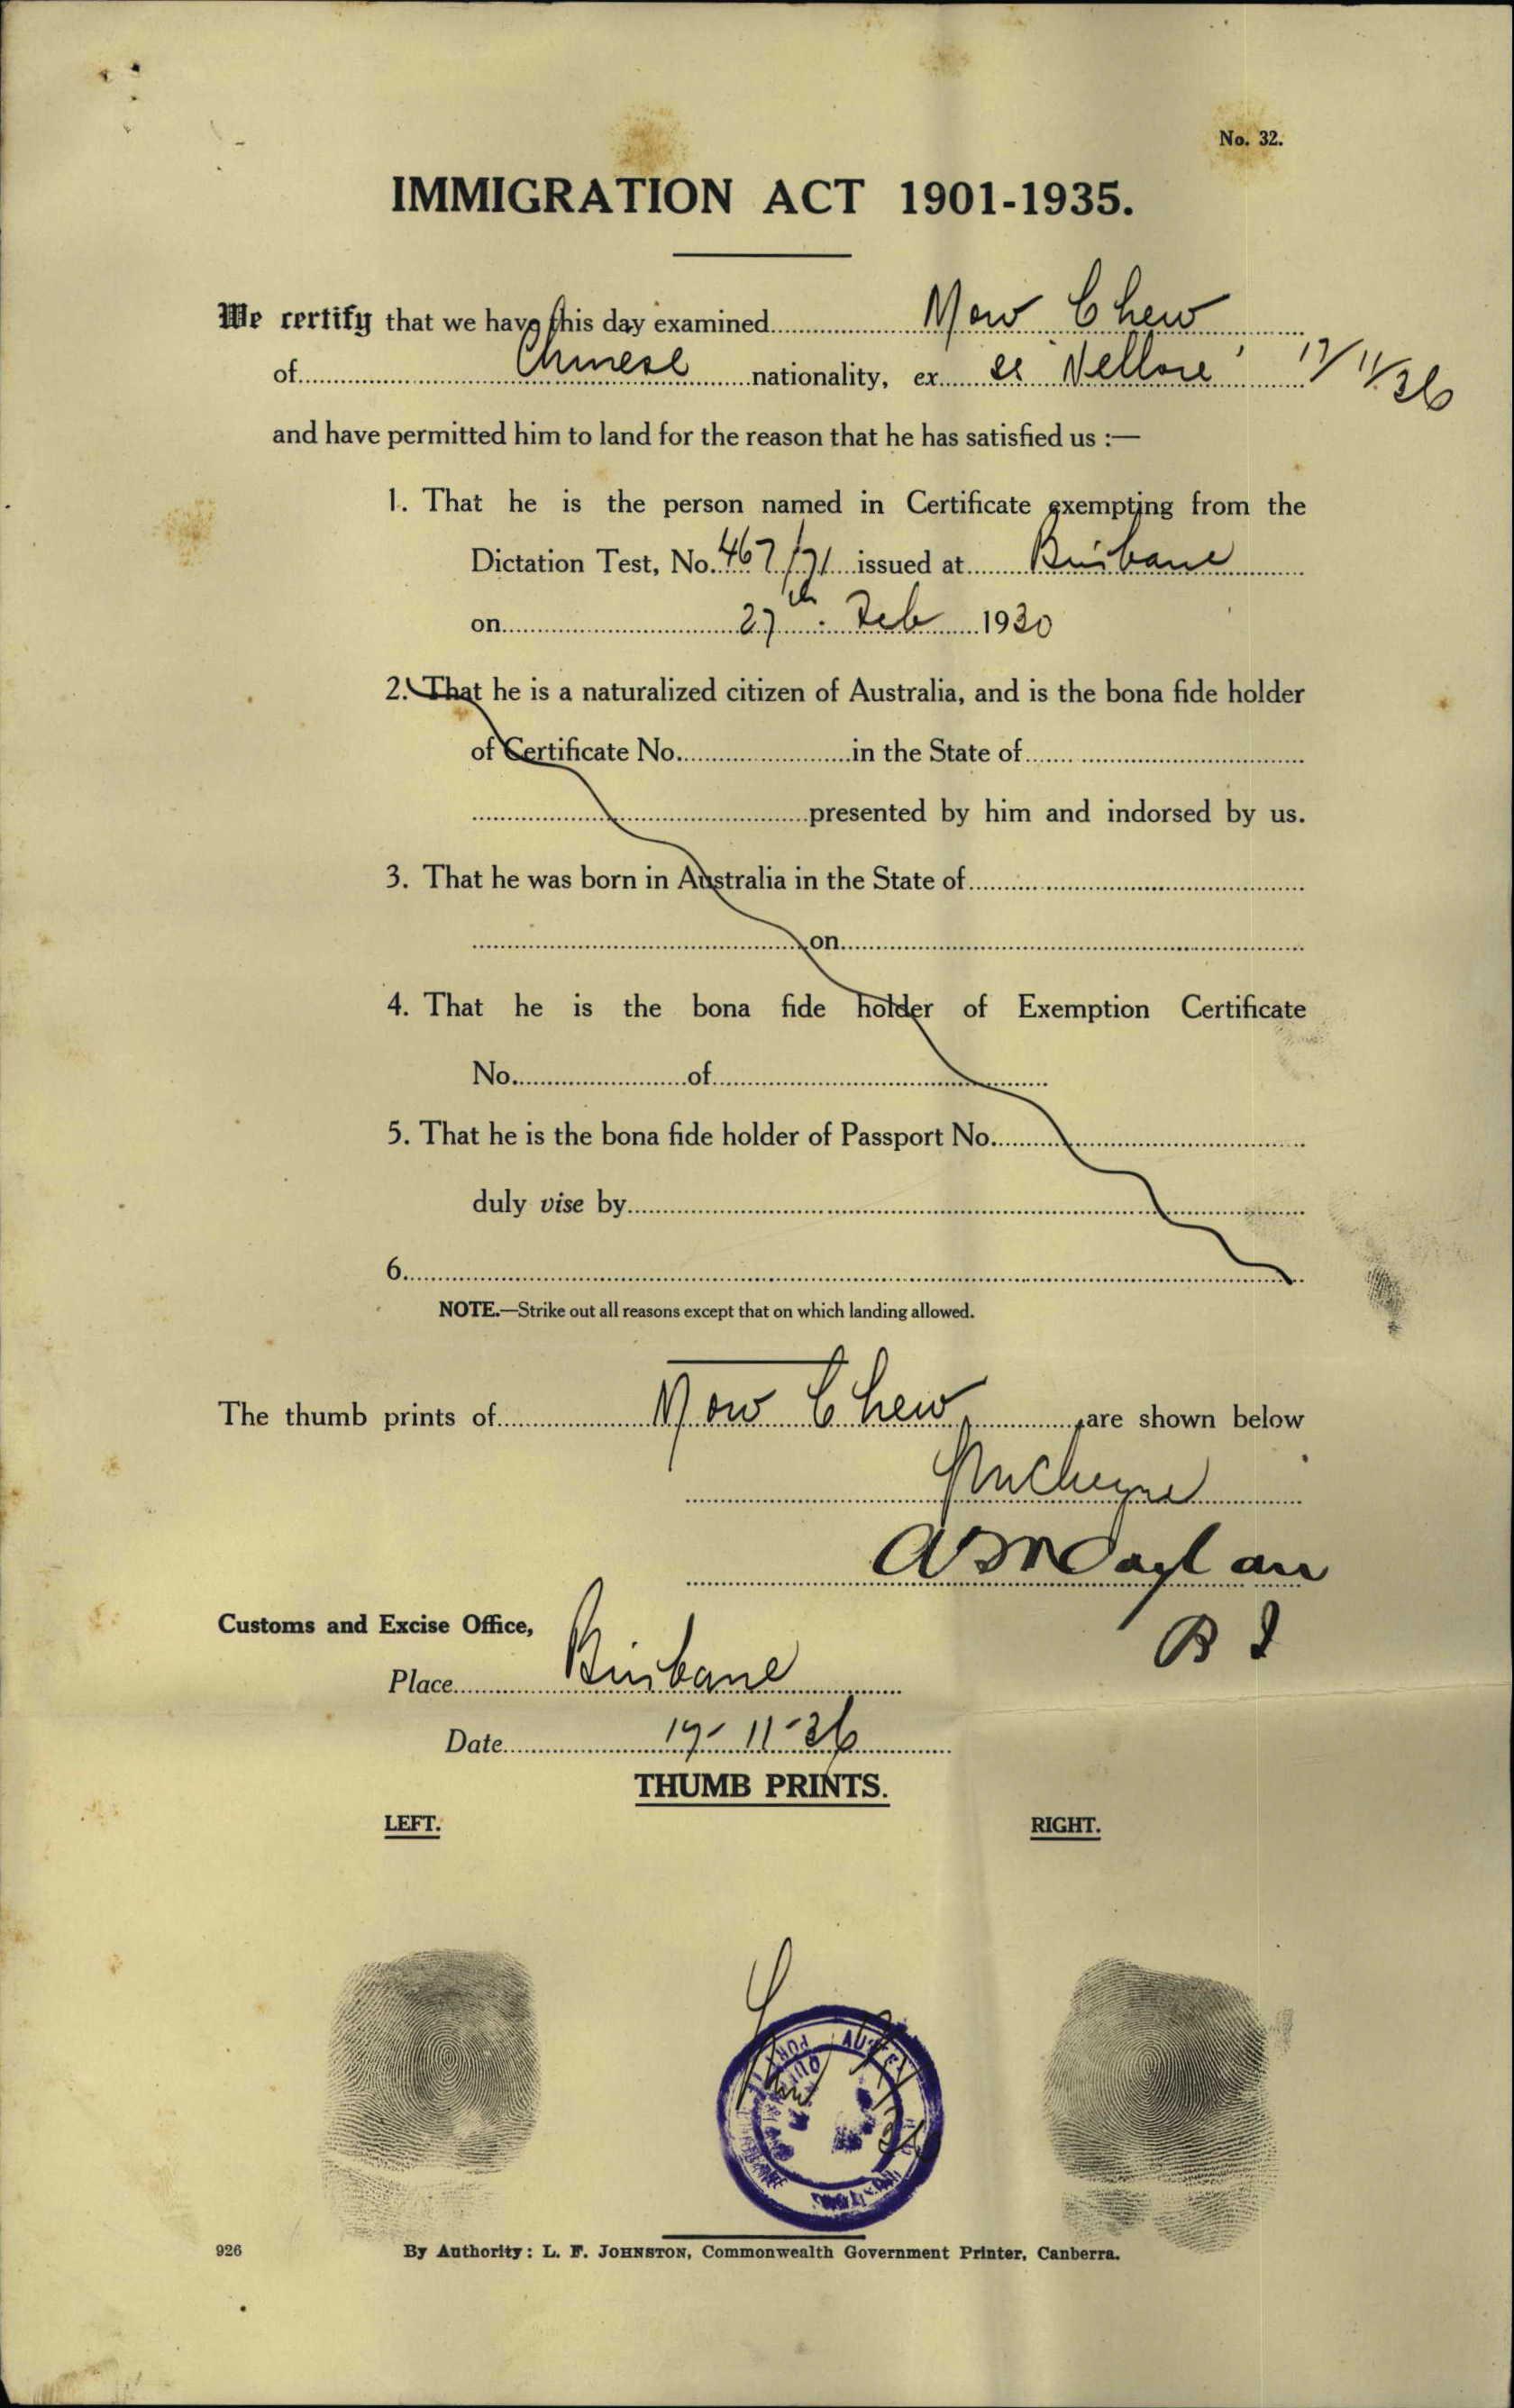 No. 32.
IMMIGRATION ACT 1901-1935.
We certify that we have this day examined Mow Chew
of Chinese nationality, ex ss Nellore 17/11/36
and have permitted him to land for the reason that he has satisfied us :—
1. That he is the person named in Certificate exempting from the
Dictation Test, No. 467/71 issued at Brisbane
on 27th Feb 1930
2. That he is a naturalized citizen of Australia, and is the bona fide holder
of Certificate No. in the State of
presented by him and indorsed by us.
3. That he was born in Australia in the State of
on
4. That he is the bona fide holder of Exemption Certificate
No. of
5. That he is the bona fide holder of Passport No.
duly vise by
6.
NOTE.—Strike out all reasons except that on which landing allowed.
The thumb prints of Mow Chew are shown below
Customs and Excise Office,
B I
Place Brisbane
Date 17-11-36
THUMB PRINTS.
LEFT. RIGHT.
926 By Authority: L. F. JOHNSTON, Commonwealth Government Printer, Canberra.